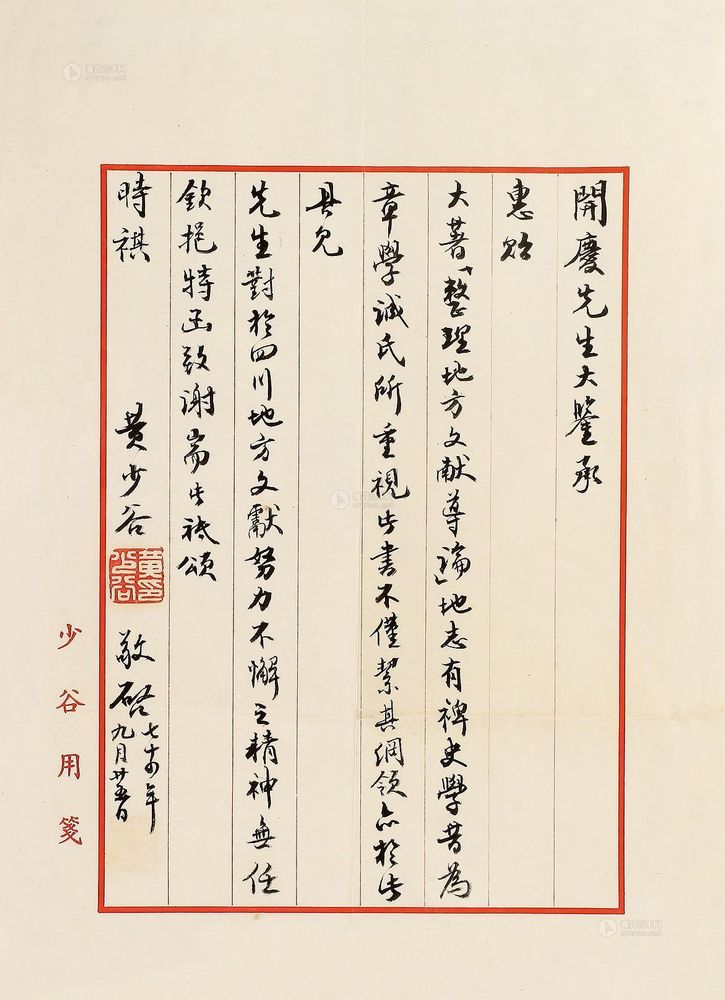 開慶先生大鑒承
惠貽
大著「整理地方文獻導論」地志有裨史學昔為
章學誠氏所重視此書不僅絜其綱領亦於此
具見
先生對於四川地方文獻努力不懈之精神無任
欽挹特函致謝耑此祗頌
時祺
黃少谷
黃少谷印
敬啓
七十四年
九月廿五日
少谷用箋